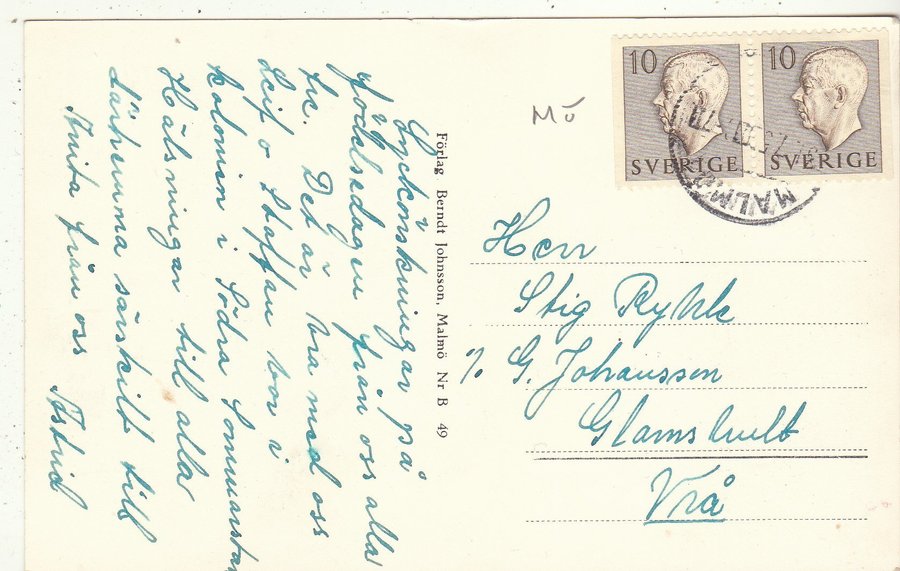 Lyckönskningar på
födelsedagen från oss alla
hr. Det är bra med oss
Leif o Staffan bor i
kolonien i Södra Sommarstan
Hälsningar till alla
därhemma särskilt till
Anita från oss Astrid
Förlag Berndt Johnsson, Malmö Nr B 49
Mö
10
SVERIGE
10
SVERIGE
MALMÖ
Herr
Stig Ryhle
% G. Johansson
Glamshult
Vrå